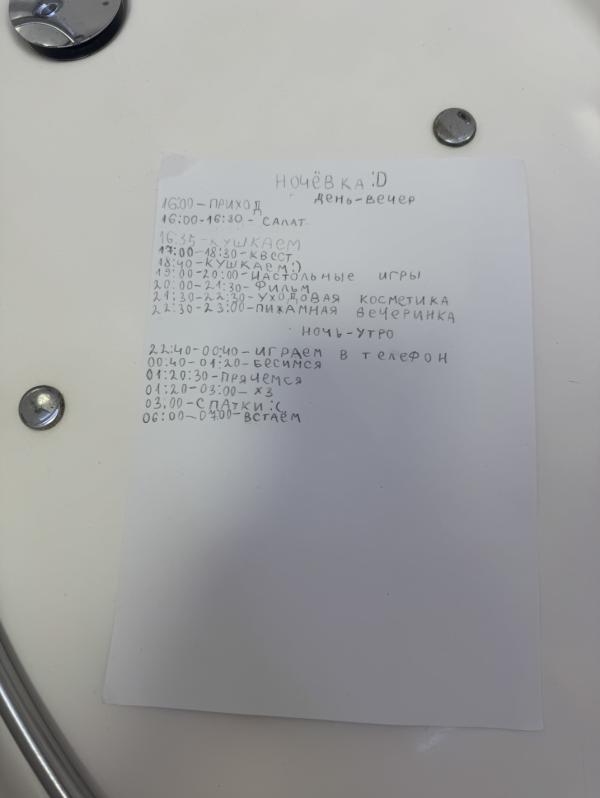 НОЧЁВКА :D
ДЕНЬ-ВЕЧЕР
16:00-ПРИХОД
16:00-16:30-САЛАТ
16:35-КУШКАЕМ
17:00-18:30-КВЕСТ
18:40-КУШКАЕМ:)
19:00-20:00-НАСТОЛЬНЫЕ ИГРЫ
20:00-21:30-ФИЛЬМ
21:30-22:30-УХОДОВАЯ КОСМЕТИКА
22:30-23:00-ПИЖАМНАЯ ВЕЧЕРИНКА
НОЧЬ-УТРО
22:40-00:40-ИГРАЕМ В ТЕЛЕФОН
00:40-01:20-БЕСИМСЯ
01:20:30-ПРЯЧЕМСЯ
01:20-03:00-ХЗ
03:00-СПАТКИ:(
06:00-07:00-ВСТАЁМ